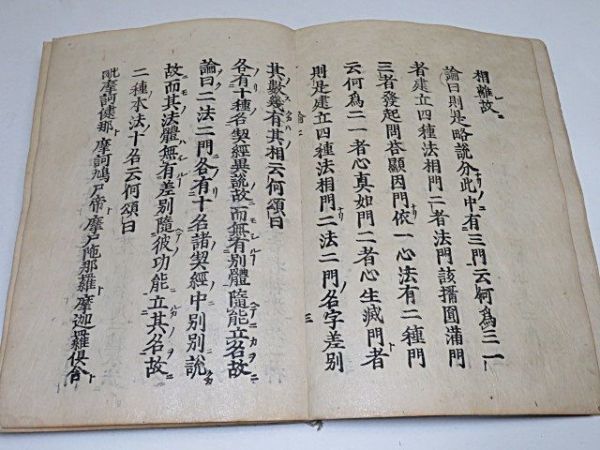 相離故
論曰則是略說分此中有三門云何為三一
者建立四種法相門二者法門該攝圓滿門
三者發起問荅顯因門依一心法有二種門
云何為二一者心真如門二者心生滅門者
則是建立四種法相門二法二門名字差別
其數幾有其相云何頌曰
各有十種名契經異說故而無有別體隨能立名故
論曰二法二門各有十名諸契經中別別說
故而其法體無有差別隨彼功能立其名故
二種本法十名云何頌曰
毗摩訶健那摩訶鳩尸帝摩尸陁那羅摩迦羅俱舍